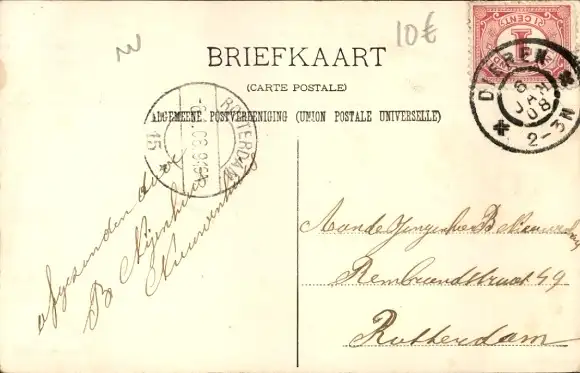 10€
BRIEFKAART
(CARTE POSTALE)
ALGEMEENE POSTVEREENIGING (UNION POSTALE UNIVERSELLE)
1 CENT
1
DIEREN
6 JAN 08
2-3N
ROTTERDAM
15
afgezonden door
B Nijenhuis
Aan de
B
Rembrandtstraat 49
Rotterdam